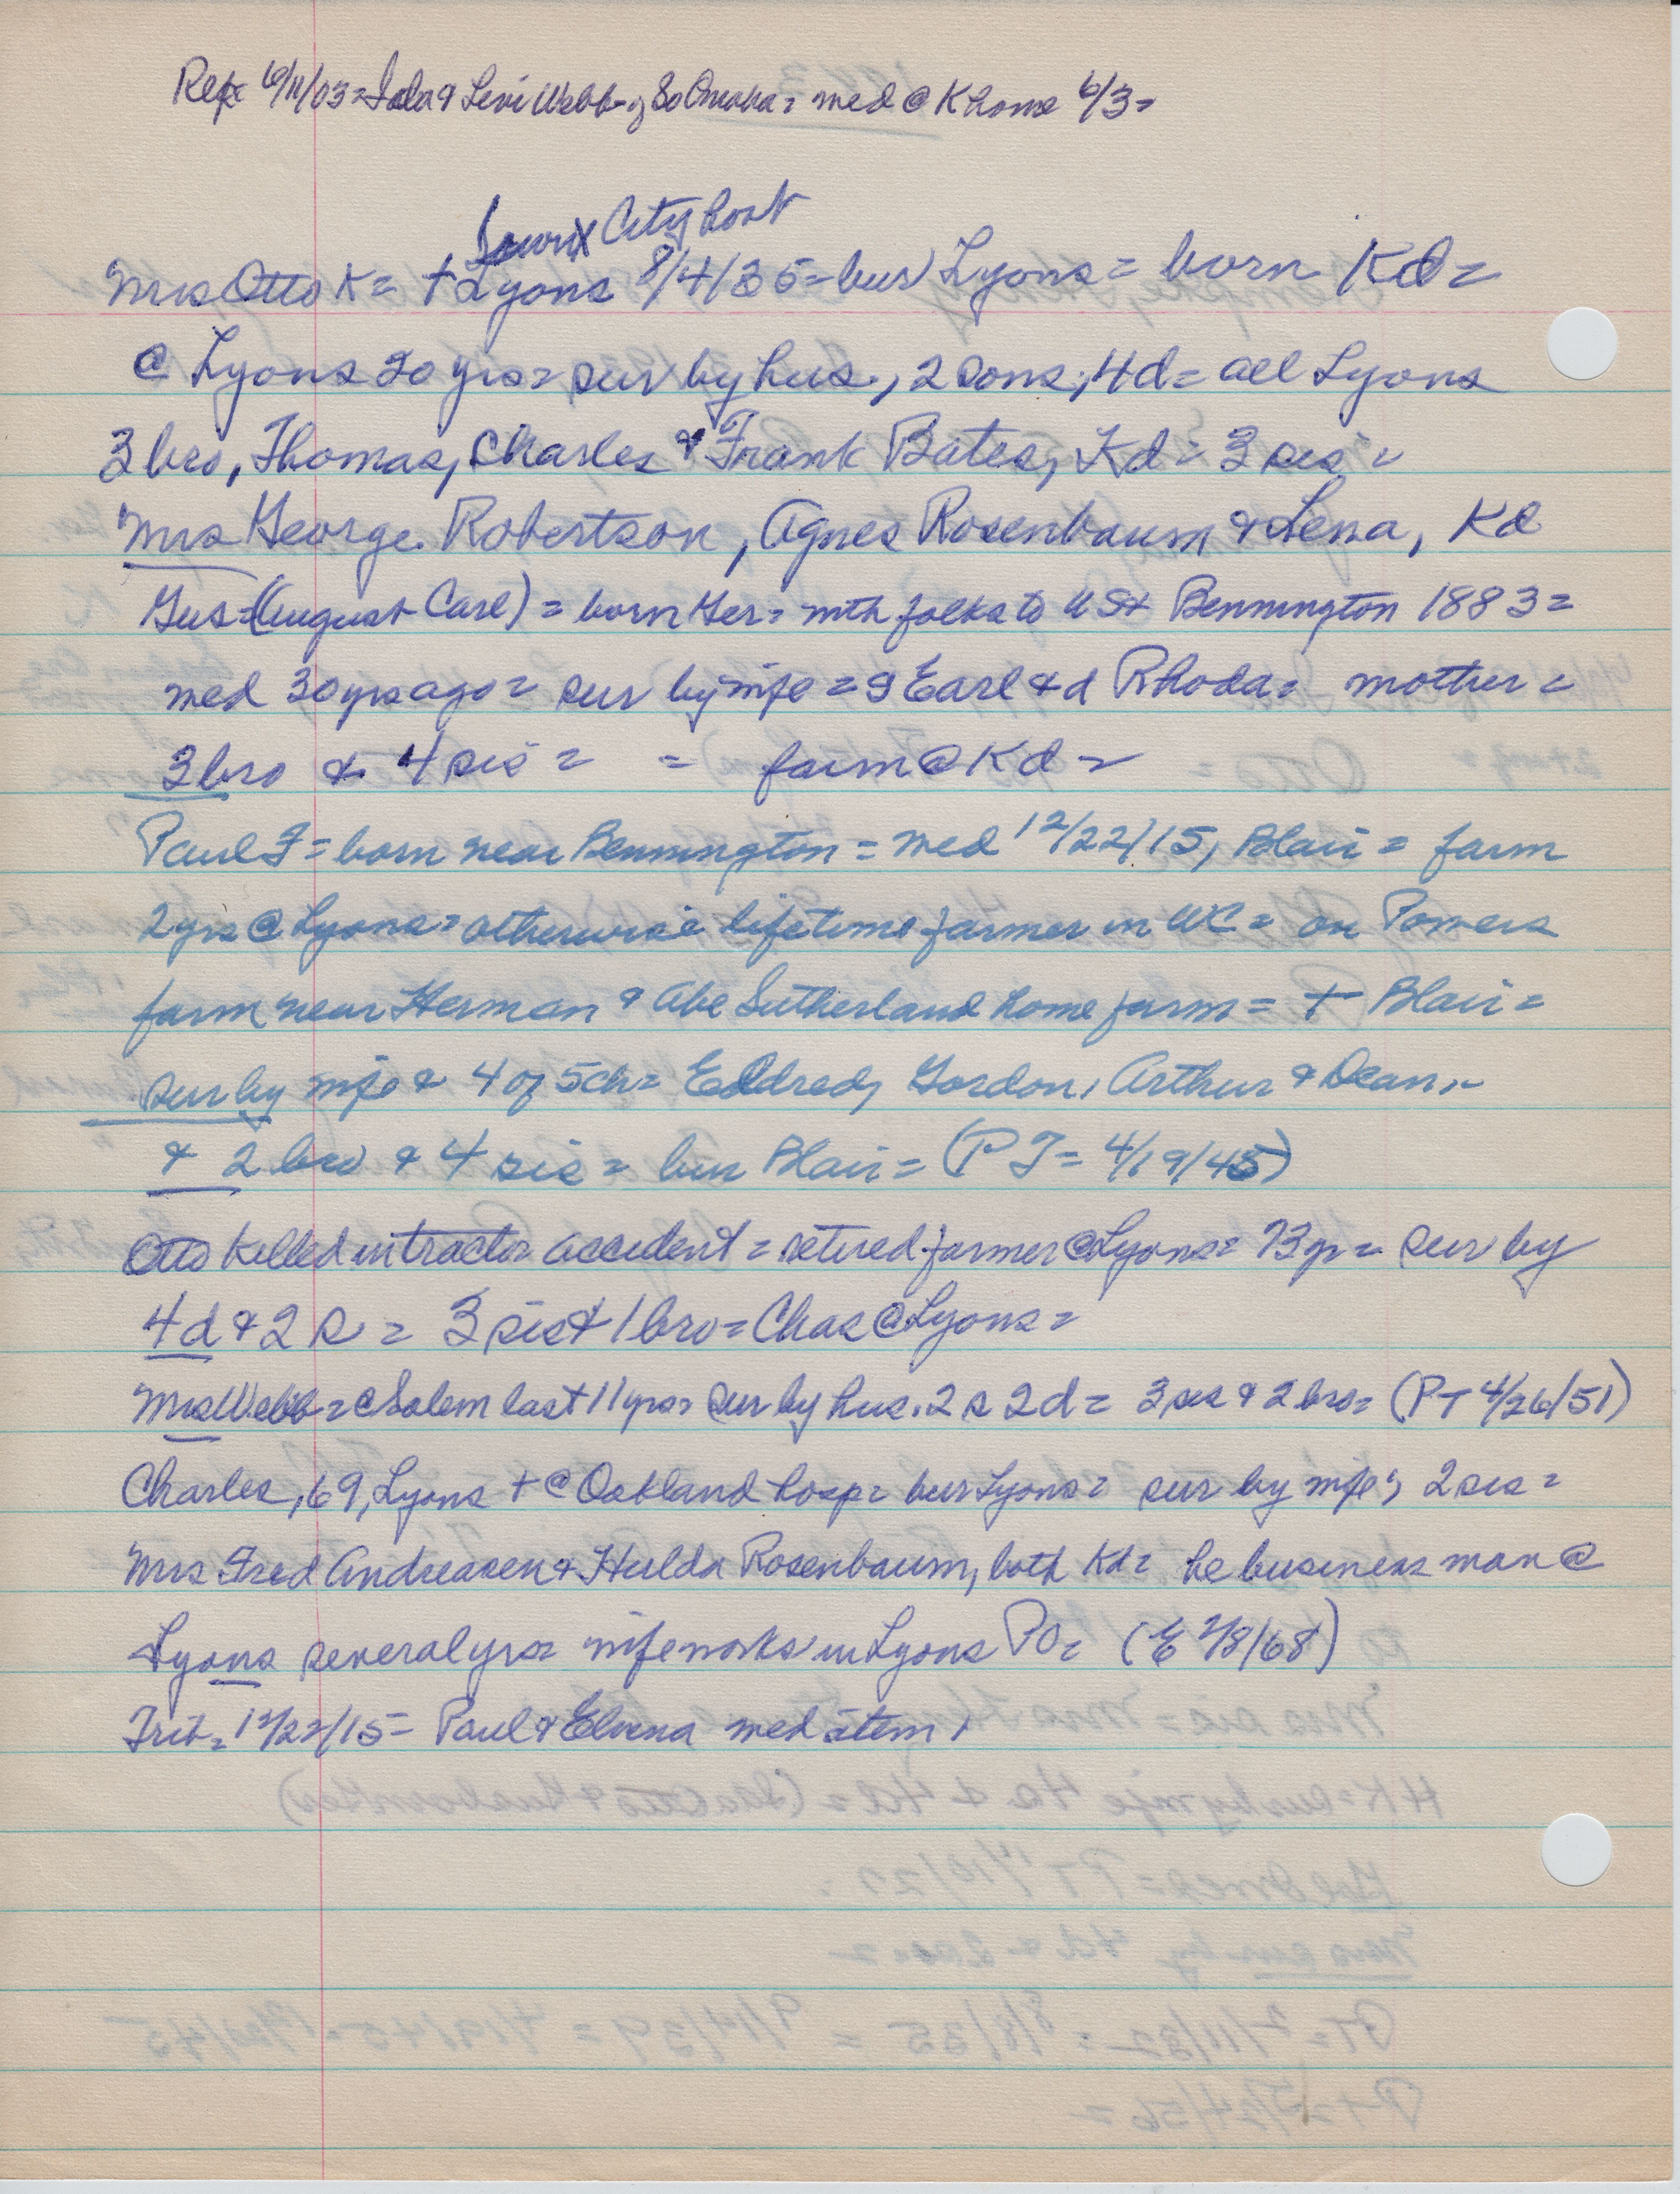 Rep= 6/11/03= Ida & Levi Webb - of So Omaha= med @ K home 6/3=
Sioux City hosp
Mrs Otto K= + Lyons 8/4/35= bur Lyons= born Kd=
@ Lyons 20 yrs= sur by hus., 2 sons, 4d= all Lyons
3 bro, Thomas, Charles & Frank Bates, Kd= 3 sis=
Mrs George Robertson, Agnes Rosenbaum & Lena, Kd
Gus=(August Carl) = born Ger= with folks to US & Bennington 1883=
med 30 yrs ago= sur by wife = s Earl & d Rhoda= mother=
3 bro & 4 sis= = farm @ Kd=
Paul F= born near Bennington= med 12/22/15, Blair= farm
2 yrs @ Lyons= otherwise lifetime farmer in WC= on Powers
farm near Herman & Abe Sutherland home farm= + Blair=
sur by wife & 4 of 5 ch= Eldred, Gordon, Arthur & Dean,-
& 2 bro & 4 sis= bur Blair= (PT= 4/19/45)
Otto killed in tractor accident= retired farmer @ Lyons= 73 yr= sur by
4d & 2 s= 3 sis & 1 bro= Chas @ Lyons=
Mrs Webb= @ Salem last 11 yrs= sur by hus. 2 s 2d= 3 sis & 2 bro= (PT 4/26/51)
Charles, 69, Lyons + @ Oakland hosp= bur Lyons= sur by wife, 2 sis=
Mrs Fred Andreasen & Hulda Rosenbaum, both Kd= he business man @
Lyons several yrs= wife works in Lyons PO= (E 2/8/68)
Trib= 12/22/15= Paul & Elvena med item